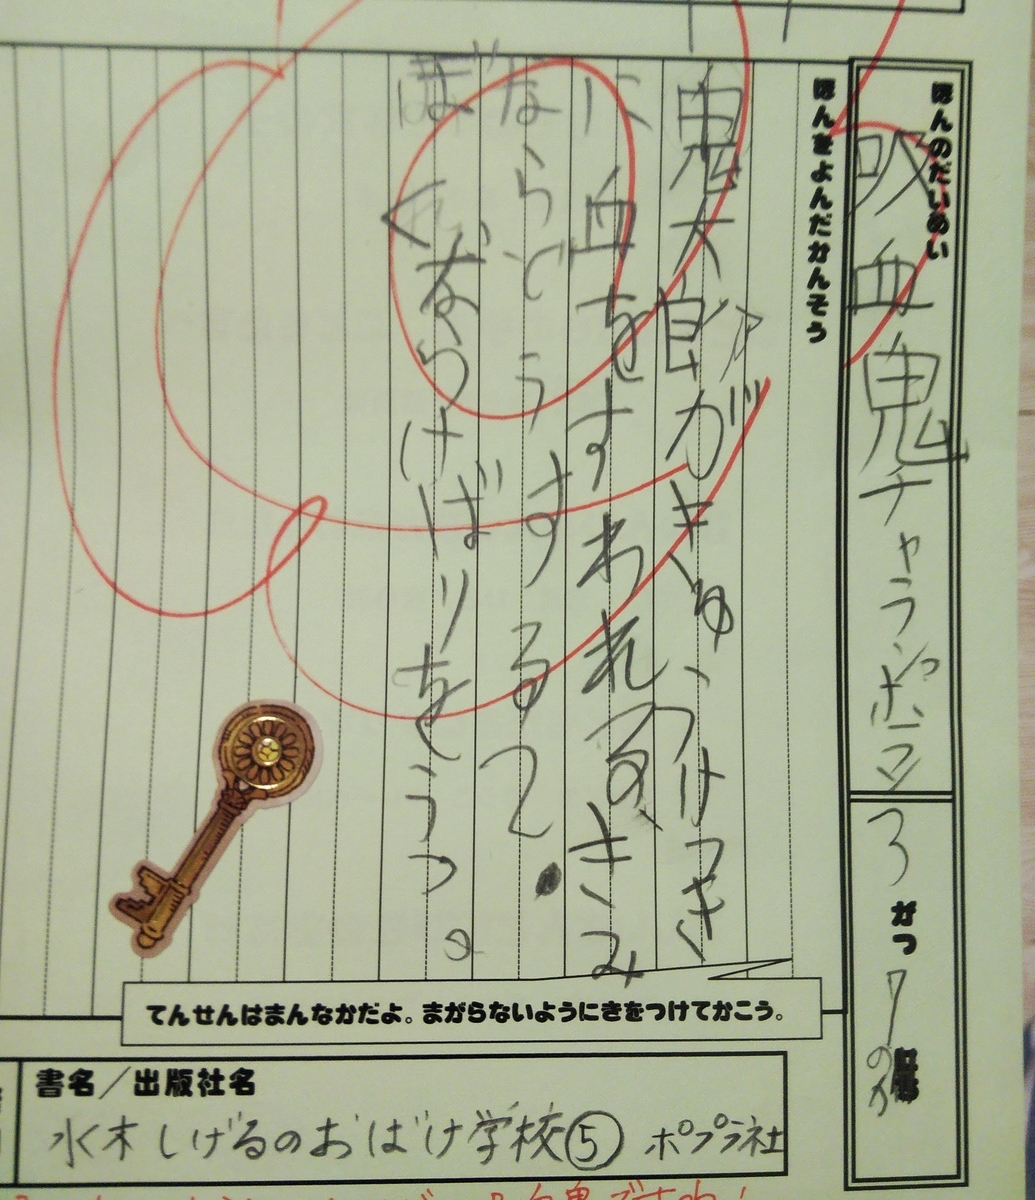 ほんのだいめい
吸血鬼チャランポラン
3がつ7
ほんをよんだかんそう
鬼太郎がきゅうけつき
に血をすわれるきみ
ならどうするて。
ぼくならけばりをうつ。
てんせんはまんなかだよ。まがらないようにきをつけてかこう。
書名／出版社名
水木しげるのおばけ学校⑤ ポプラ社